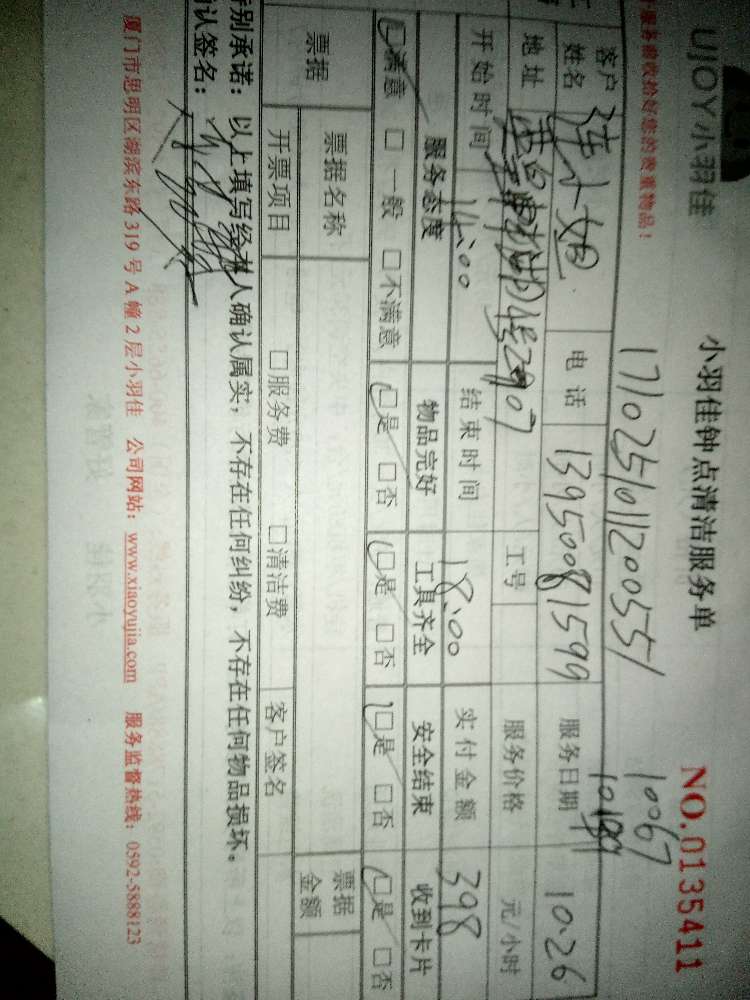 UJOY小羽佳
小羽佳钟点清洁服务单
NO.0135411
服务前收拾好您的贵重物品!
17102510112005551
10067
客户姓名 连小姐 电话 13950081599 服务日期 10.26
地址 2907 工号 服务价格 元/小时
开始时间 14:00 结束时间 18:00 实付金额 398
服务态度 物品完好 工具齐全 安全结束 收到卡片
□满意 □一般 □不满意 □是 □否 □是 □否 □是 □否 □是 □否
票据 票据名称 票据金额
开票项目 □服务费 □清洁费 客户签名
特别承诺:以上填写经本人确认属实,不存在任何纠纷,不存在任何物品损坏。
确认签名:
厦门市思明区湖滨东路 319 号 A 幢 2 层小羽佳 公司网站:www.xiaoyujia.com 服务监督热线:0592-5888123